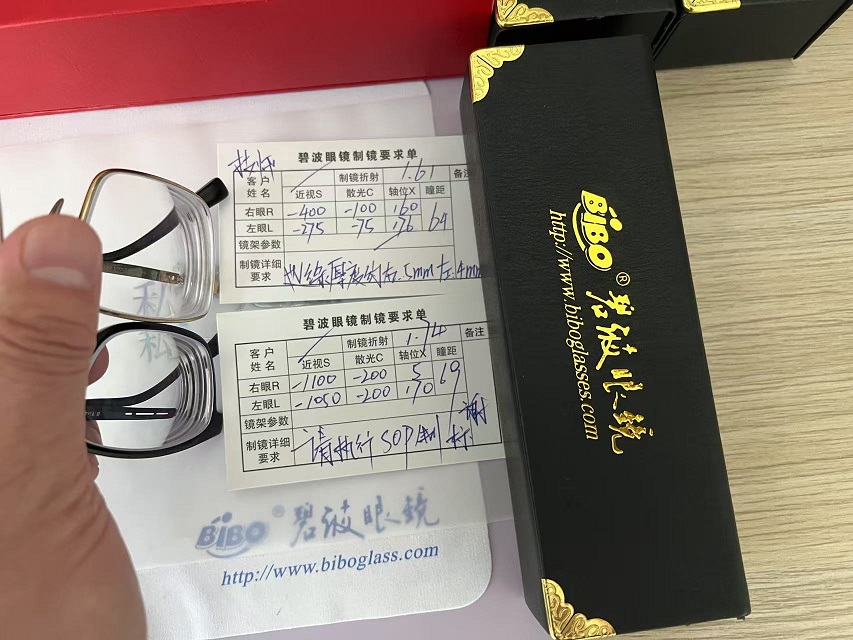 碧波眼镜制镜要求单
客户姓名 制镜折射 1.61 备注
近视S 散光C 轴位X 瞳距
右眼R -400 -100 160 64
左眼L -275 -75 176
镜架参数
制镜详细要求 边缘厚度约右.5mm左.4mm
碧波眼镜制镜要求单
客户姓名 制镜折射 1.74 备注
近视S 散光C 轴位X 瞳距
右眼R -1100 -200 5 69
左眼L -1050 -200 170
镜架参数
制镜详细要求 请执行SOP 谢
BiBO® 碧波眼镜
http://www.biboglass.com
BiBO® 碧波眼镜
http://www.biboglasses.com
私
私